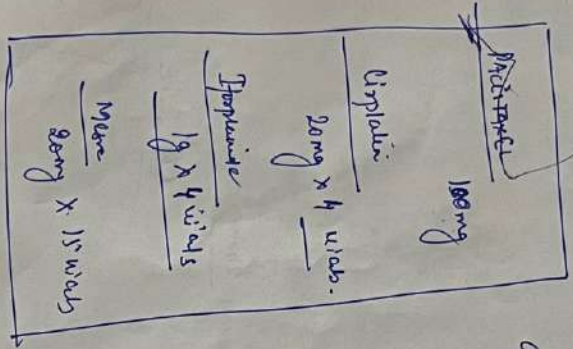 PACLITAXEL
100mg
Cisplatin
20mg x 4 vials.
Ifosphamide
1g x 4 vials
Mesna
20mg x 15 vials